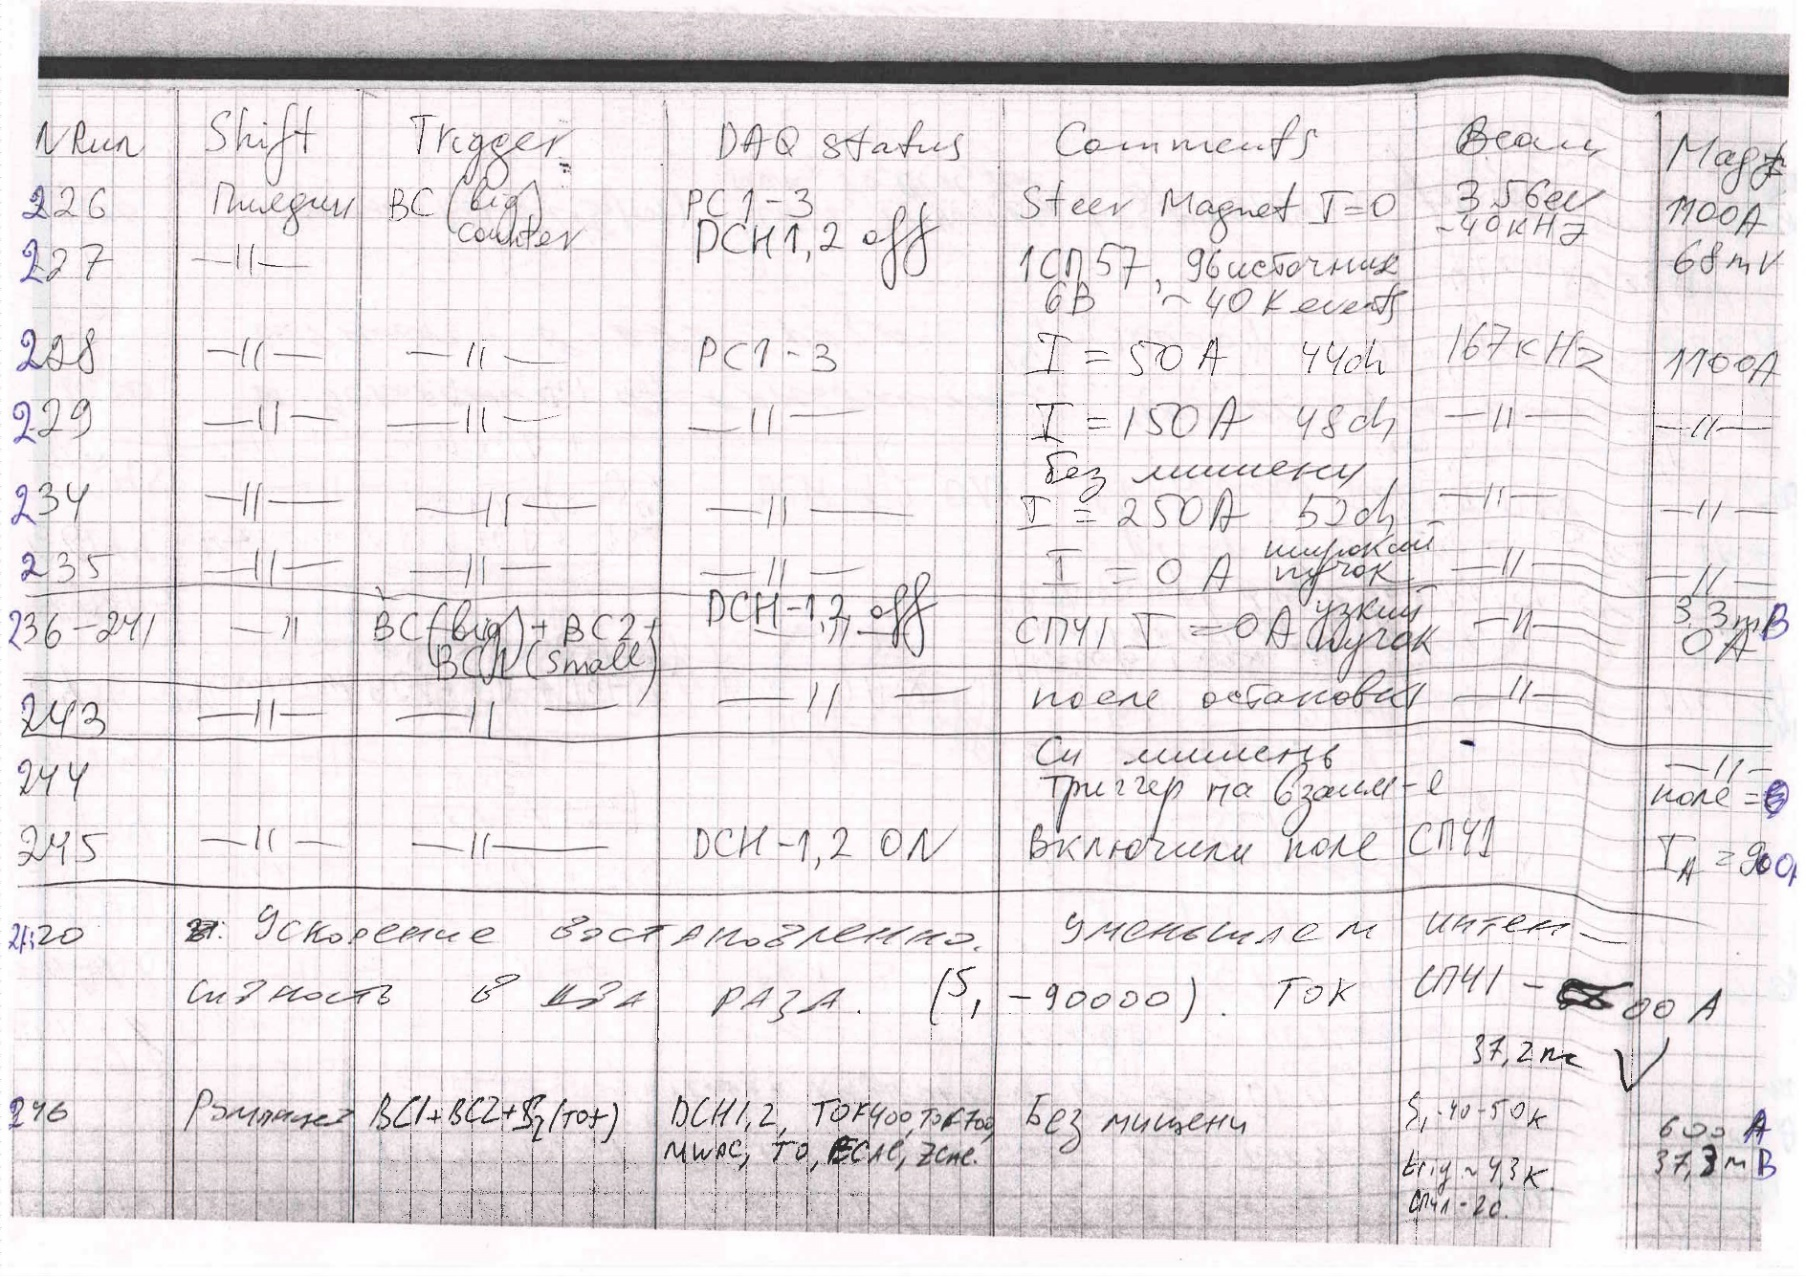 N Run Shift Trigger DAQ status Comments Beam Magn
226 Пиядин BC (big) counter PC1-3 DCH1,2 off Steer Magnet I=0 3.5Gev ~40kHz 1100A
227 —11— 1СП57, 96 источник 68mV
6В ~40K events
228 —11— —11— PC1-3 I = 50A 44ch 167kHz 1100A
229 —11— —11— —11— I = 150A 48ch —11— —11—
без мишени
234 —11— —11— —11— I = 250A 52ch —11— —11—
235 —11— —11— —11— I = 0A широкий пучок —11— —11—
236-241 —11 BC(big)+BC2+ BC1(small) DCH-1,2 off —11— СП41 I=0A узкий пучок —11— 3,3mB 0A
243 —11— —11— —11— после остановки —11—
Cu мишень —11—
244 Триггер на взаим-е поле =0
245 —11— —11— DCH-1,2 ON Включили поле СП41 I_A = 900A
20 Ускорение востановленно. Уменьшаем интен-
сивность в два раза. (S1 -90000). ток СП41 - 00A
37,2m
246 BC1+BC2+ (TOF) DCH1,2, TOF400, TOF700, Без мишени S1-40-50K 600 A
MWPC, T0, ECAL, ZDC. trig ~4,3K 37,3mB